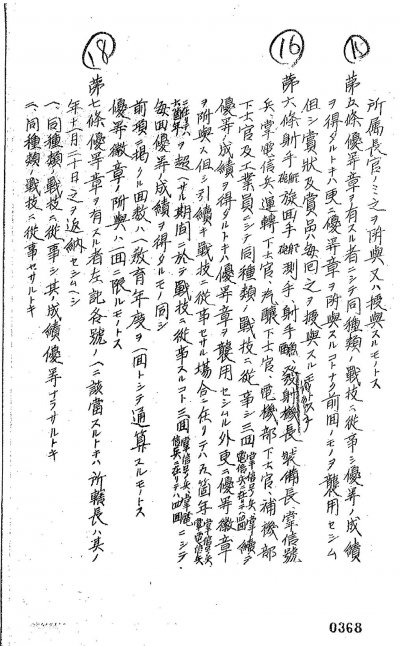 ⑮
所属長官ノミ之ヲ附與又ハ授與スルモノトス
第五條優昇章ヲ有スル者ニシテ同種類ノ戰技ニ從事シ優昇ノ成績
ヲ得タルトキハ更ニ優昇章ヲ附與スルコトナク前回ノモノヲ襲用セシム
但シ賞狀及賞品ハ毎回之ヲ授與スルモノトス
⑯
第六條射手 旋回手 測手、射手 發射機長 裝備長、掌信號
兵、掌電信兵、運轉下士官、汽釀下士官、電機部下士官、補機部
下士官及工業員ニシテ同種類ノ戰技ニ從事シ三回 成績ヲ
優昇ノ成績ヲ得タルトキハ優昇章ヲ襲用セシムル外更ニ優昇徽章
ヲ附與ス但シ引續キ戰技ニ從事セサル場合ニ在リテハ五箇年
ヲ超ヘサル期間ニ於テ戰技ニ從事スルコト三回 ニシテ
毎回優昇ノ成績ヲ得タルモノ亦同シ
前項ニ掲クル回數ハ一敎育年度ヲ一回トシテ通算スルモノトス
優昇徽章ノ附與ハ一回ニ限ルモノトス
⑱
第七條優昇章ヲ有スル者左記各號ノ一ニ該當スルトキハ所轄長ハ其ノ
年十一月三十日之ヲ返納セシムヘシ
一、同種類ノ戰技ニ從事シ其ノ成績優昇ナラサルトキ
二、同種類ノ戰技ニ從事セサルトキ
0368